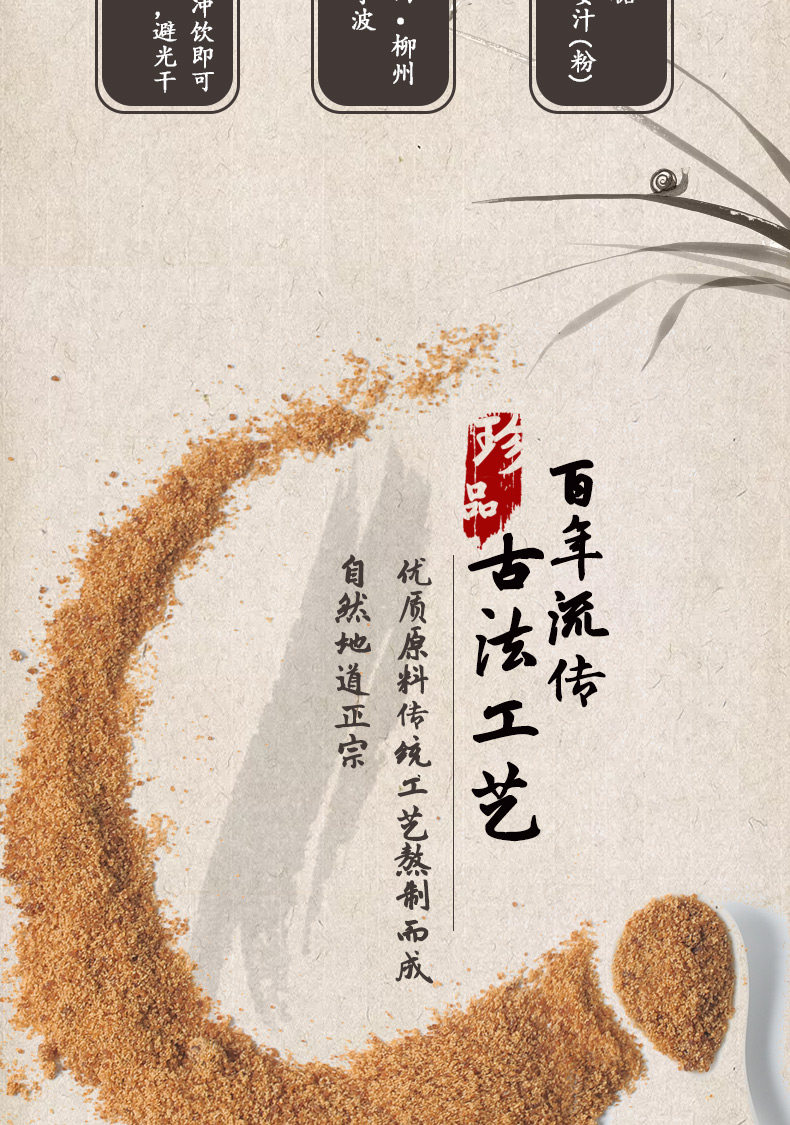 汁(粉)
·柳州
波
冲饮即可
，避光干
百年流传
珍品
古法工艺
优质原料传统工艺熬制而成
自然地道正宗